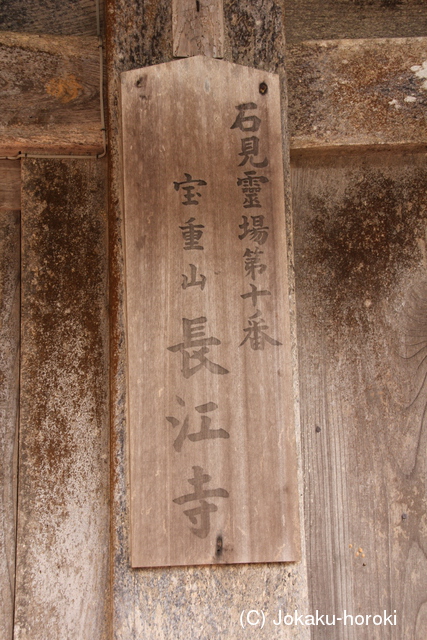 石見霊場第十番
宝重山 長江寺
(C) Jokaku-horoki